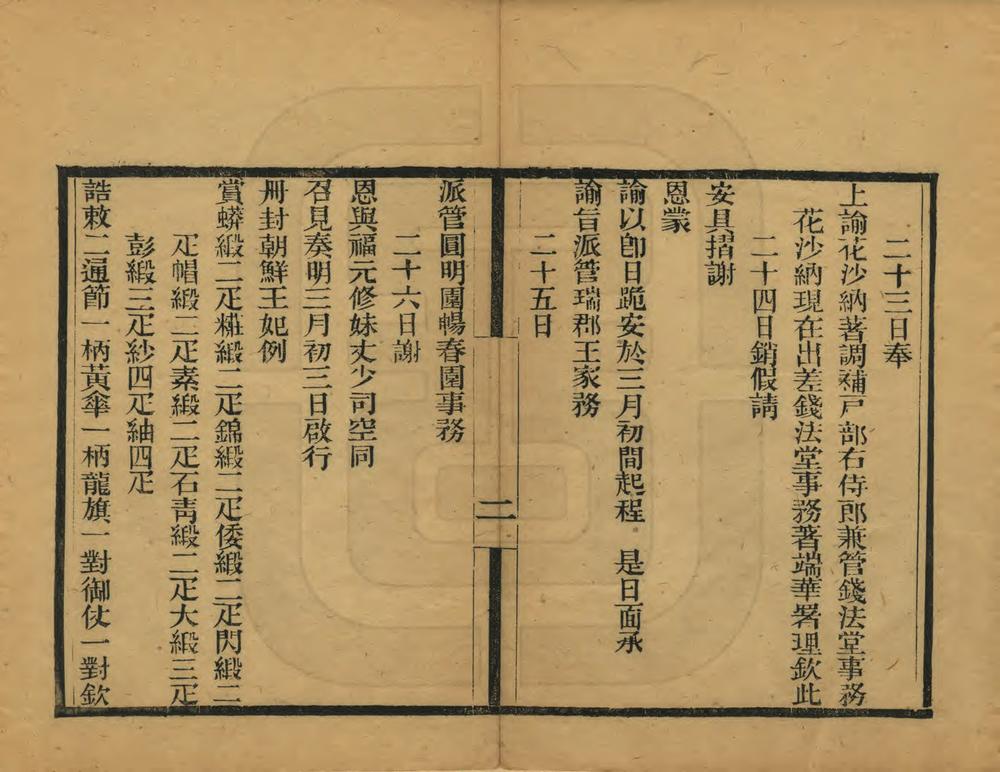 二十三日奉
上諭花沙納著調補戸部右侍郎兼管錢法堂事務
花沙納現在出差錢法堂事務著端華署理欽此
二十四日銷假請
安具摺謝
恩蒙
諭以卽日跪安於三月初間起程 是日面承
諭旨派管瑞郡王家務
二十五日
二
派管圓明園暢春園事務
二十六日謝
恩與福元修妹丈少司空同
召見奏明三月初三日啟行
冊封朝鮮王妃例
賞蟒緞二疋粧緞二疋錦緞二疋倭緞二疋閃緞二
疋帽緞二疋素緞二疋石靑緞二疋大緞三疋
彭緞三疋紗四疋紬四疋
誥敕二通節一柄黃傘一柄龍旗一對御仗一對欽